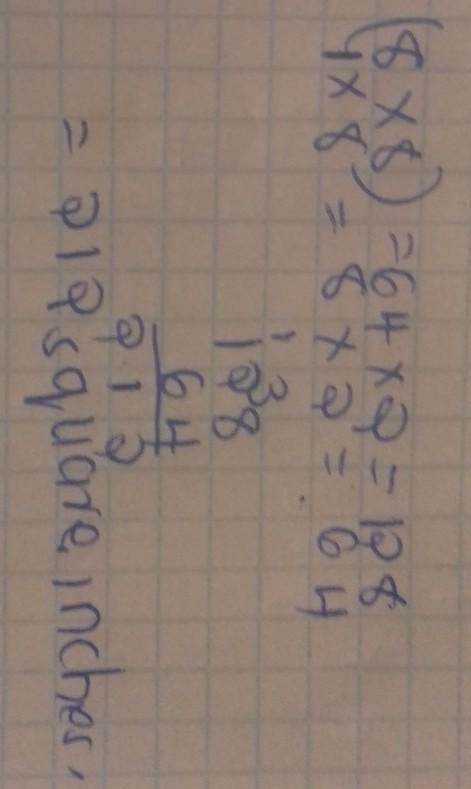 (8 x 8) = 64 x 2 = 128
4 x 8 = 8 x 2 = 64
1 3
128
64
212
= 212 square inches.